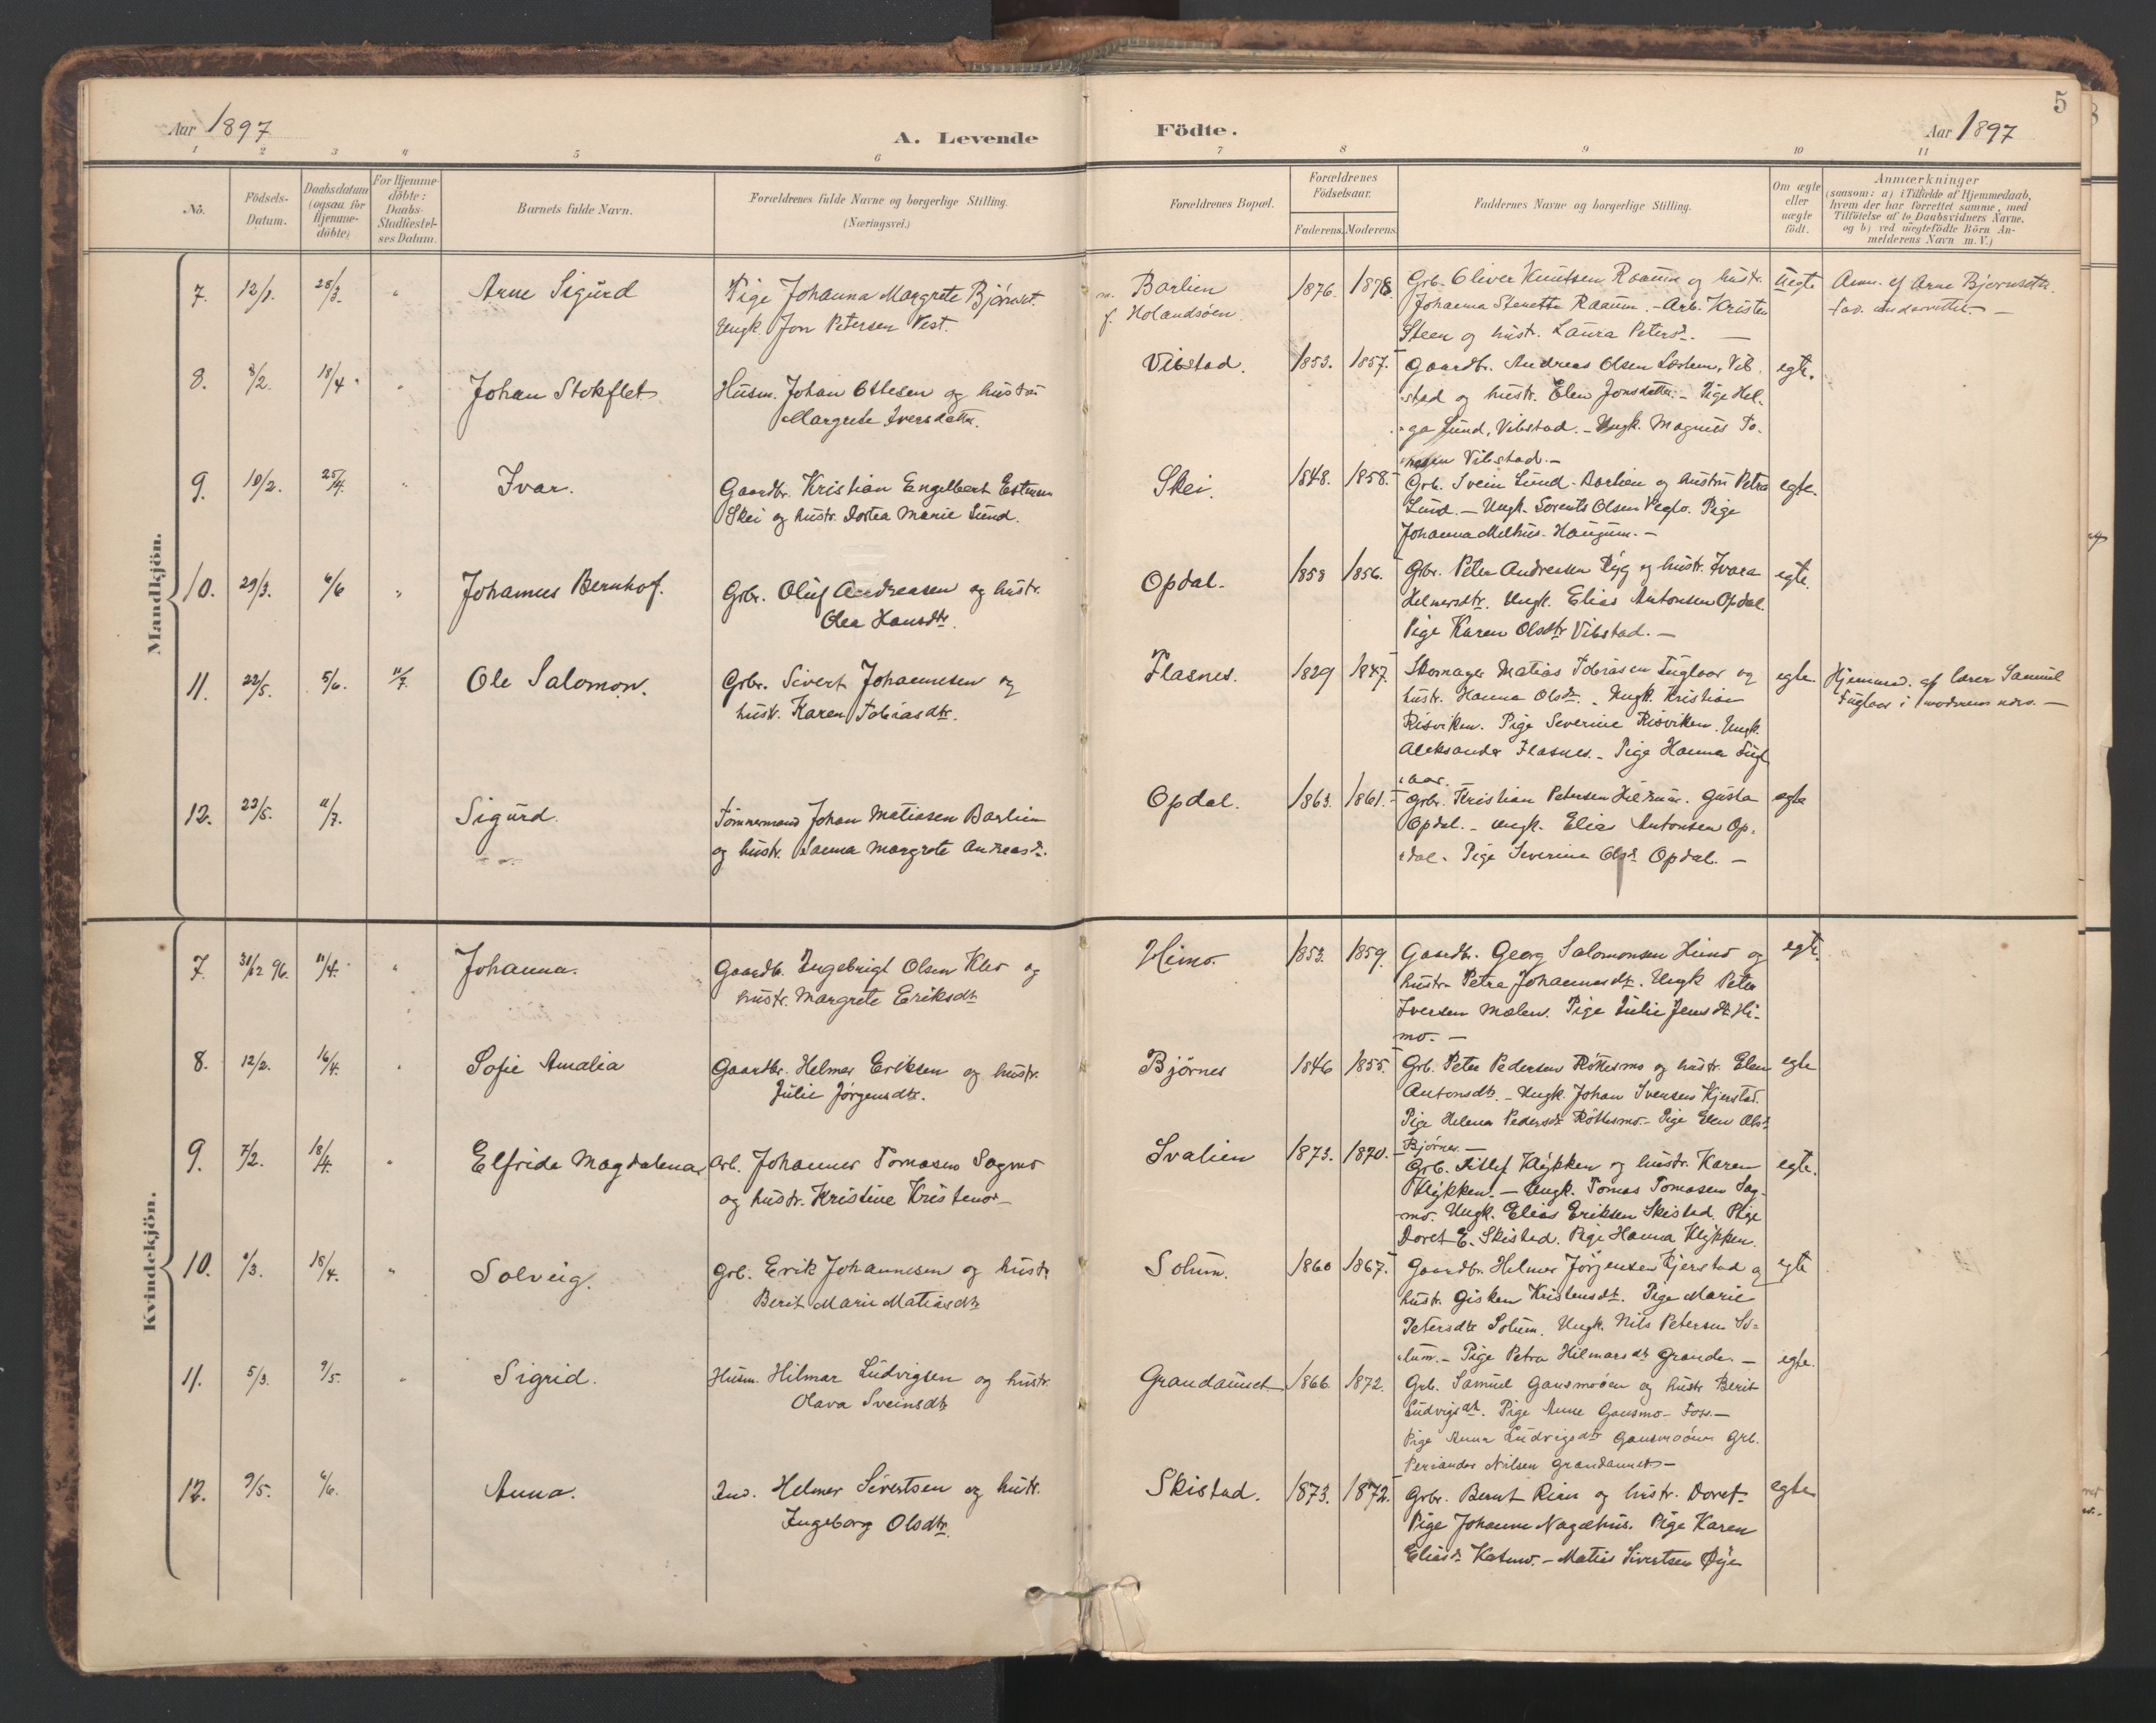 5
Aar 1897
A. Levende
Födte.
Aar 1897
1 2 3 4 5 6 7 8 9 10 11
No.
Födsels-
Datum.
Daabsdatum
(ogsaa for
Hjemme-
döbte)
For Hjemme-
döbte:
Daabs-
Stadfæstel-
ses Datum.
Barnets fulde Navn.
Forældrenes fulde Navne og borgerlige Stilling.
(Næringsvei.)
Forældrenes Bopæl.
Forældrenes
Födselsaar.
Faderens. Moderens.
Faddernes Navne og borgerlige Stilling.
Om ægte
eller
uægte
födt.
Anmærkninger
(saasom: a) i Tilfælde af Hjemmedaab,
hvem der har forrettet samme, med
Tilföielse af to Daabsvidners Navne,
og b) ved uægtefödte Börn An-
melderens Navn m. V.)
Mandkjön.
7. 12/1. 28/3. " Arne Sigurd
Pige Johanna Margrete Bjørnset.
Ungk. Jon Petersen Vest.
m. Barlien
f. Holandsöen.
1876. 1878
Grb. Oliver Knutsen Raaum og hustr.
Johanna Raaum. - Arb. Kristen
Steen og hustr. Laura Petersd. —
Uegte
Anm. af Arne Bjørnsetm.
8. 8/2. 18/4. " Johan Stokflet
Husm. Johan Ottesen og hustru
Margrete Iversdatter.
Vibstad. 1853. 1857.
Gaardbr. Andreas Olsen Vib-
stad og hustr. Elen Jonsdatter. - Pige Hel-
ga Lund, Vibstad. - Ungk. Magnus To-
Vibstad. -
egte.
9. 10/2. 25/4. " Ivar.
Gaardbr. Kristian Engelbert Estensen
Skei og hustr. Dortea Marie Lund.
Skei. 1848. 1858.
Grb. Svein Lund Barlien og hustru Petra
Lund. - Ungk. Sorents Olsen Pige
Johanna Melhus - Haugum. -
egte.
10. 29/3. 6/6 " Johannes Bernhof.
Grbr. Oluf Andreasen og hustr.
Olea Hansdtr.
Opdal. 1858 1856.
Grbr. Peter Andresen Ryg og hustr. Ivara
Helmersdtr. Ungk. Elias Antonsen Opdal.
Pige Karen Olsdtr Vibstad. -
egte.
11. 22/5. 5/6. 11/7. Ole Salomon.
Grbr. Sivert Johannesen og
hustr. Karen Tobiasdtr.
Flasnes. 1829 1847.
Skomager Matias Tobiasen Fuglaar og
hustr. Hanna Olsdr. Ungk. Kristian
Risviken. Pige Severine Risviken. Ungk.
Aleksander Flasnes. - Pige Hanna Fugl-
aar.
egte.
Hjemmed. af lærer Samuel
Fuglaar i moderens nærv. —
12. 23/5. 11/7. Sigurd.
Tömmermand Johan Matiasen Barlien
og hustr. Sanna Margrete Andreasd.
Opdal. 1863. 1861.
Grbr. Kristian Petersen Gusta
Opdal. - Ungk. Elias Antonsen Op-
dal. Pige Severine Olsd. Opdal. —
egte
Kvindekjön.
7. 31/12 96. 11/4. " Johanna.
Gaardb. Ingebrigt Olsen og
hustr. Margrete Eriksdtr.
Himo. 1853. 1859.
Gaardbr. Georg Salomonsen Himo og
hustr. Petra Johannesdtr. Ungk Peter
Iversen Molen. Pige Julie Jensdtr. Hi-
mo. -
egte.
8. 12/2. 16/4. " Sofie Amalia
Gaardbr. Helmer Eriksen og hustr.
Julie Jörgensdtr.
Björnes 1846 1855.
Grb. Peter Pedersen Röttesmo og hustr. Elen
Antonsdtr. - Ungk. Johan Svensen Kjerstad.
Pige Helena Pedersdtr Röttesmo. - Pige Elen Olsd.
Björnes. -
egte
9. 7/2. 18/4. " Elfrida Magdalena.
Arb. Johannes Tomasen Sagmo
og hustr. Kristine
Svalien 1873. 1870.
Grb. Ditlef Klykken og hustr. Karen
Klykken. - Ungk. Tomas Tomasen Sag-
mo. Ungk. Elias Eriksen Skistad. Pige
Doret E. Skistad. Pige Hanna Klykken.
egte.
10. 1/3. 18/4. " Solveig.
Grb. Erik Johannesen og hustr
Berit Marie Matiasdtr
Solum. 1860 1867.
Gaardbr. Helmer Jörgensen Kjerstad og
hustr. Gisken Kristensdtr. Pige Marie
Petersdtr Solum. Ungk. Nils Petersen So-
lum. - Pige Petra Hilmarsdtr Grande. —
egte
11. 5/3. 9/5. " Sigrid.
Husm. Hilmar Ludvigsen og hustr.
Olava Sveinsdtr
Grandaunet. 1866. 1872.
Grb. Samuel Gansmoöen og hustr Berit
Ludvigsdtr. Pige Anne Gansmo - Foss. -
Pige Anna Ludvigsdtr Gansmoöen Grb.
Periander Nilsen Grandaunet -
egte.
12. 9/5. 6/6. Anna.
Ind. Helmer Sivertsen og hustr.
Ingeborg Olsdtr.
Skistad. 1873. 1872.
Grbr. Bernt Rian og hustr. Doret.
Pige Johanne Pige Karen
Eliasd. - Matis Sivertsen Öye
egte